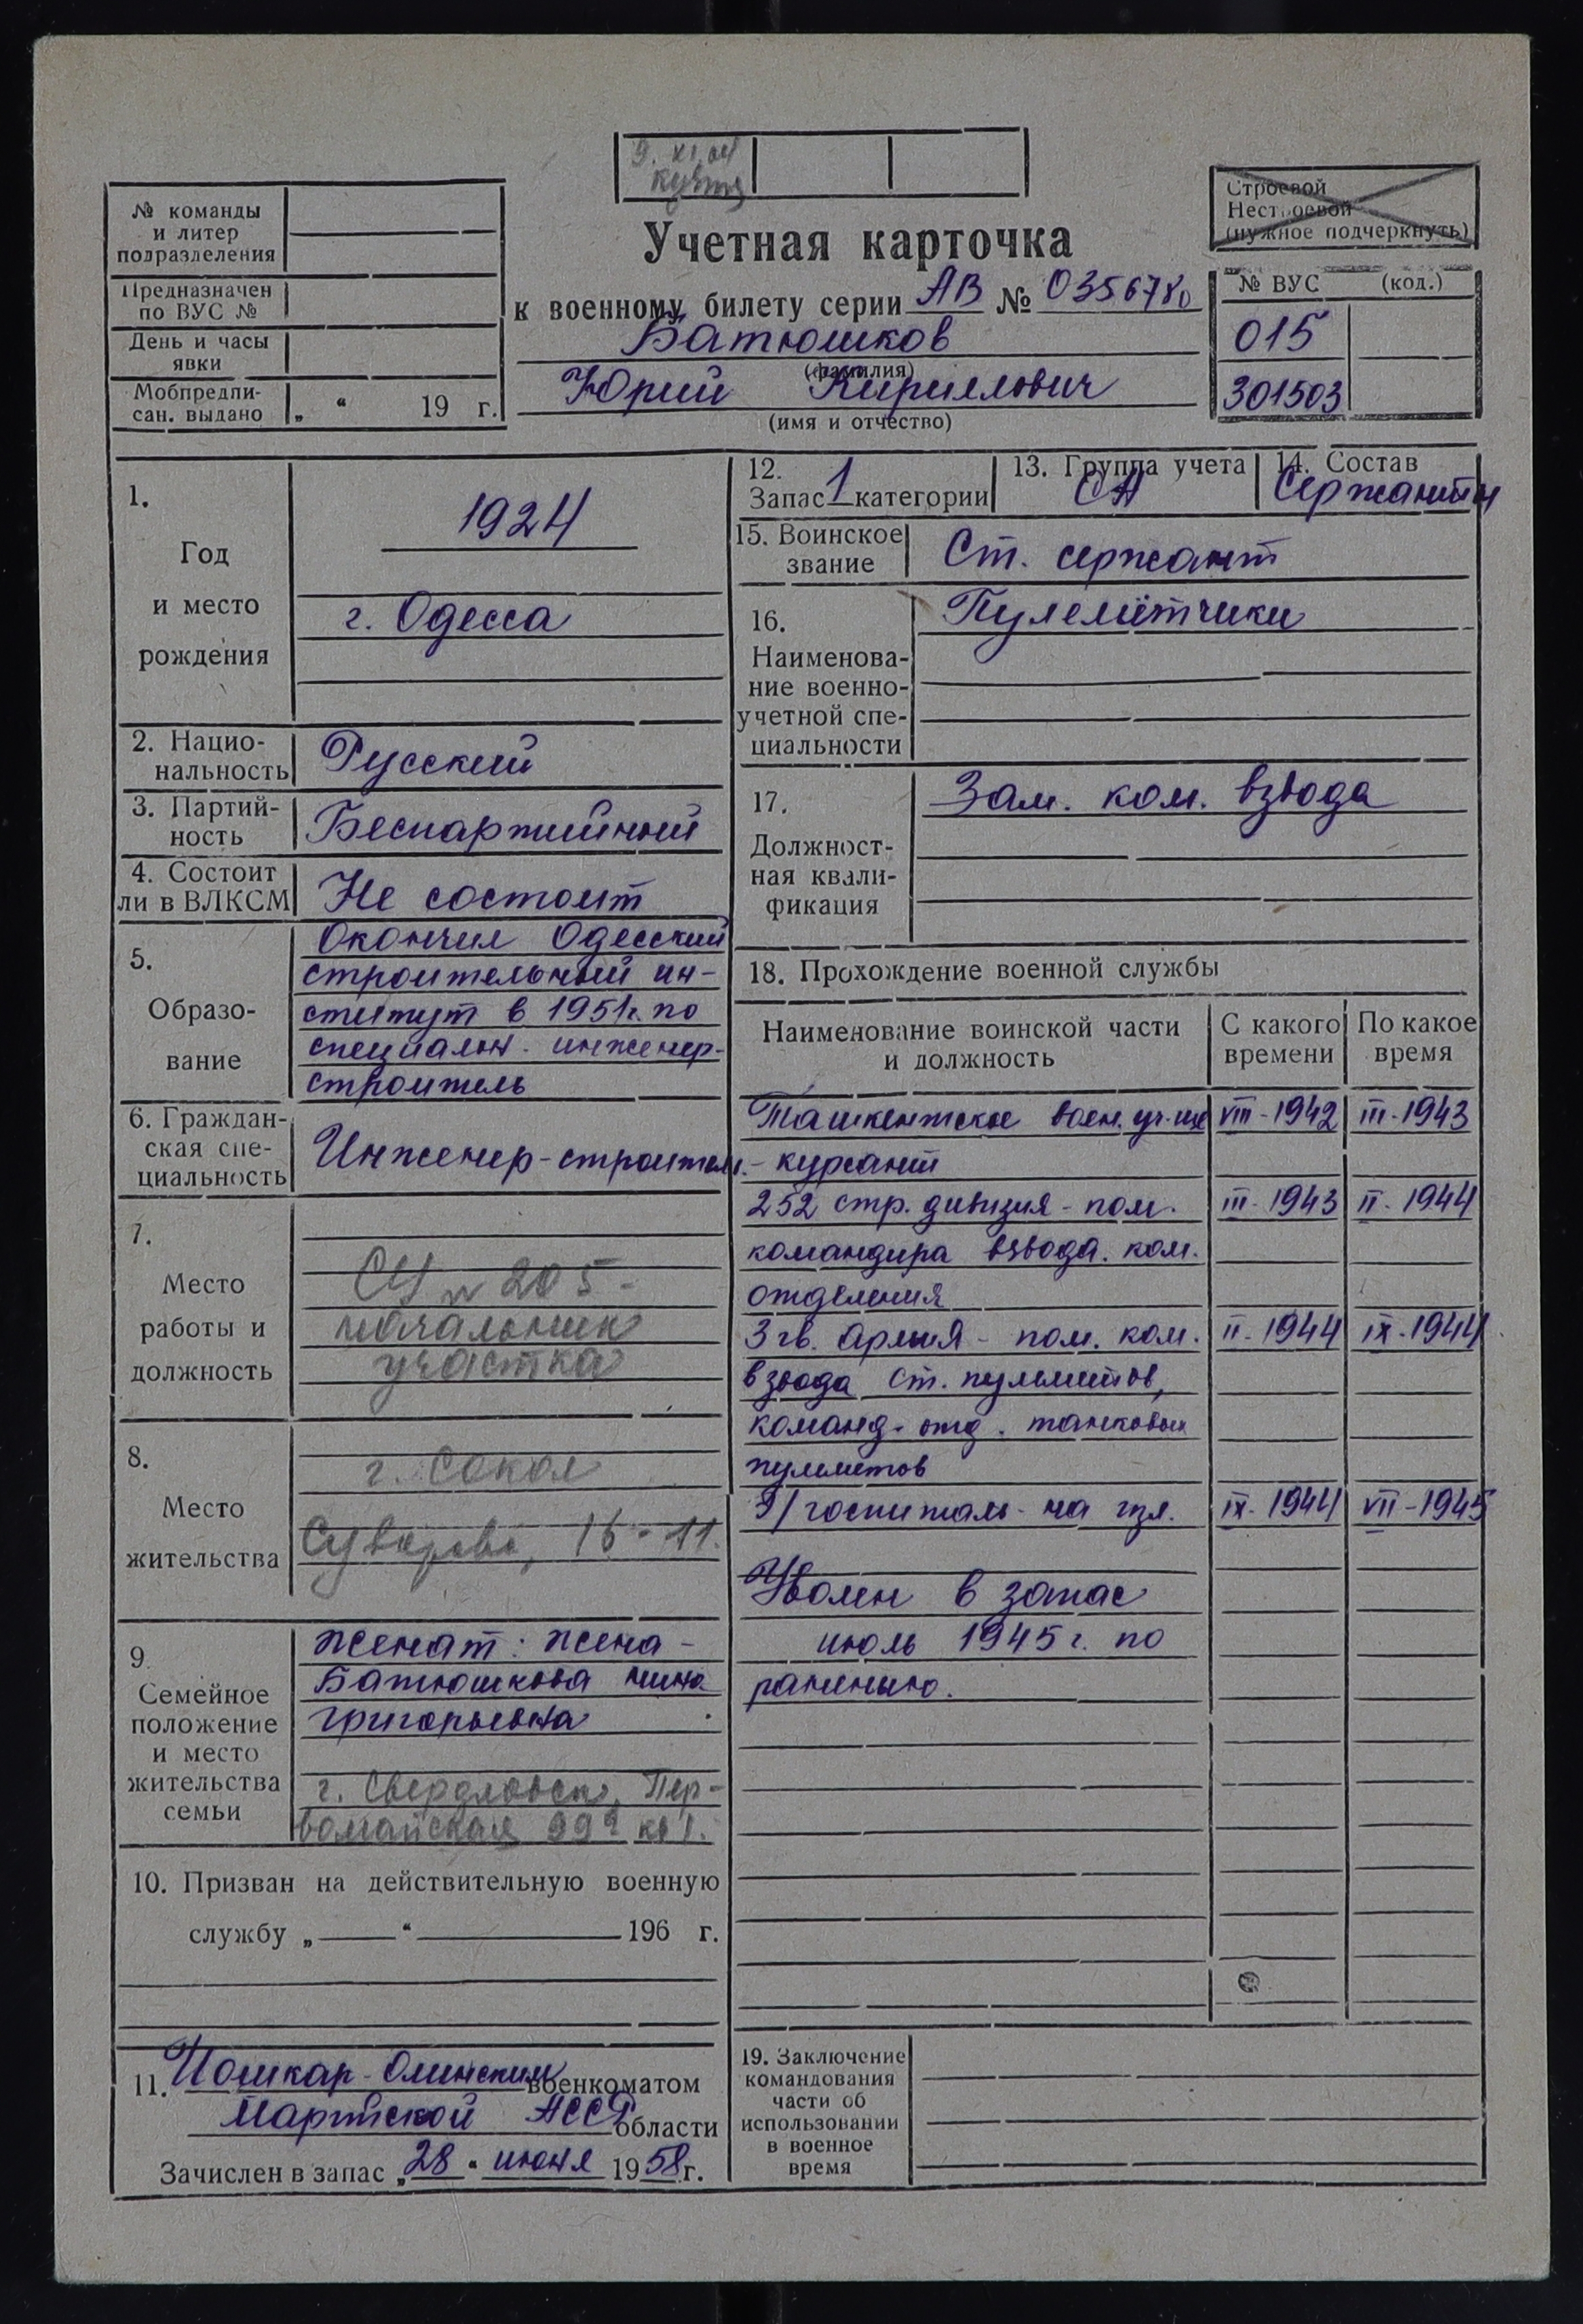 9. XI.04
№ команды
и литер
подразделения
Предназначен
по ВУС №
День и часы
явки
Мобпредпи-
сан. выдано „ “ 19 г.
Строевой
Нестроевой
(нужное подчеркнуть)
Учетная карточка
к военному билету серии АВ № 0356780
Батюшков
(фамилия)
Юрий Кириллович
(имя и отчество)
№ ВУС (код.)
015
301503
1.
Год
и место
рождения
1924
г. Одесса
2. Нацио-
нальность
Русский
3. Партий-
ность
Беспартийный
4. Состоит
ли в ВЛКСМ
Не состоит
5.
Образо-
вание
Окончил Одесский
строительный ин-
ститут в 1951г. по
специальн. инженер-
строитель
6. Граждан-
ская спе-
циальность
Инженер-строитель.
7.
Место
работы и
должность
СУ № 205 -
начальник
участка
8.
Место
жительства
г. Сокол
Суворова, 16-11.
9.
Семейное
положение
и место
жительства
семьи
женат: жена -
Батюшкова Нина
Григорьевна
г. Свердловск, Пер-
вомайская 99
10. Призван на действительную военную
службу „ “ 196 г.
11. Йошкар-Олинским военкоматом
Марийской АССР области
Зачислен в запас „28“ июня 1958г.
12.
Запас 1 категории
13. Группа учета
СА
14. Состав
Сержанты
15. Воинское
звание
Ст. сержант
16.
Наименова-
ние военно-
учетной спе-
циальности
Пулемётчики
17.
Должност-
ная квали-
фикация
Зам. ком. взвода
18. Прохождение военной службы
Наименование воинской части
и должность
С какого
времени
По какое
время
Ташкентское воен. уч-ще VIII-1942 III-1943
- курсант
252 стр. дивизия - пом. III-1943 II-1944
командира взвода. ком.
отделения
3 гв. армия - пом. ком. II-1944 IX-1944
взвода ст. пулемётов,
команд. отд. танковых
пулеметов
Э/госпиталь - на изл. IX-1944 VII-1945
Уволен в запас
июль 1945г. по
ранению.
19. Заключение
командования
части об
использовании
в военное
время